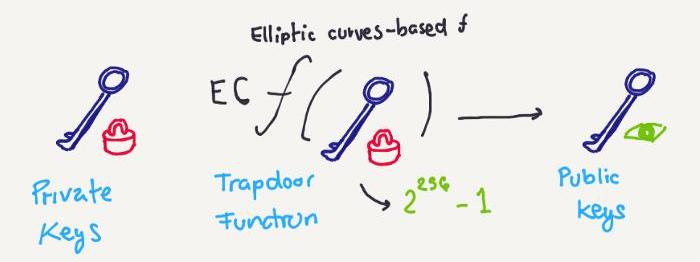 Elliptic curves-based f
EC f ( ) 
Private
Keys
Trapdoor
Function
2^256 - 1
Public
keys